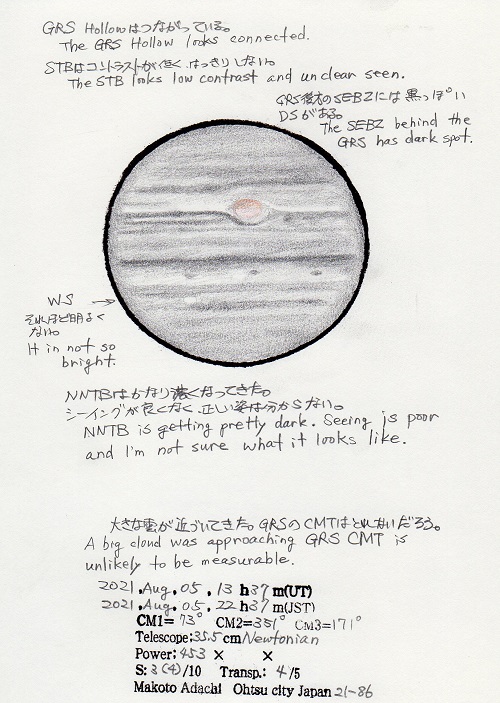 GRS Hollowはつながっている。
The GRS Hollow looks connected.
STBはコントラストが低く はっきりしない。
The STB looks low contrast and unclear seen.
GRS後方のSEBZには黒っぽい
DSがある。
The SEBZ behind the
GRS has dark spot.
WS →
それほど明るく
ない。
It in not so
bright.
NNTBはかなり濃くなってきた。
シーイングが良くなく、正しい姿は分からない。
NNTB is getting pretty dark. Seeing is poor
and I'm not sure what it looks like.
大きな雲が近づいてきた。GRSのCMTはとれないだろう。
A big cloud was approaching GRS CMT is
unlikely to be measurable.
2021.Aug.05.13h37m(UT)
2021.Aug.05.22h37m(JST)
CM1=73° CM2=351° CM3=171°
Telescope:35.5cm Newtonian
Power:453× ×
S:3(4)/10 Transp.:4/5
Makoto Adachi Ohtsu city Japan 21-86